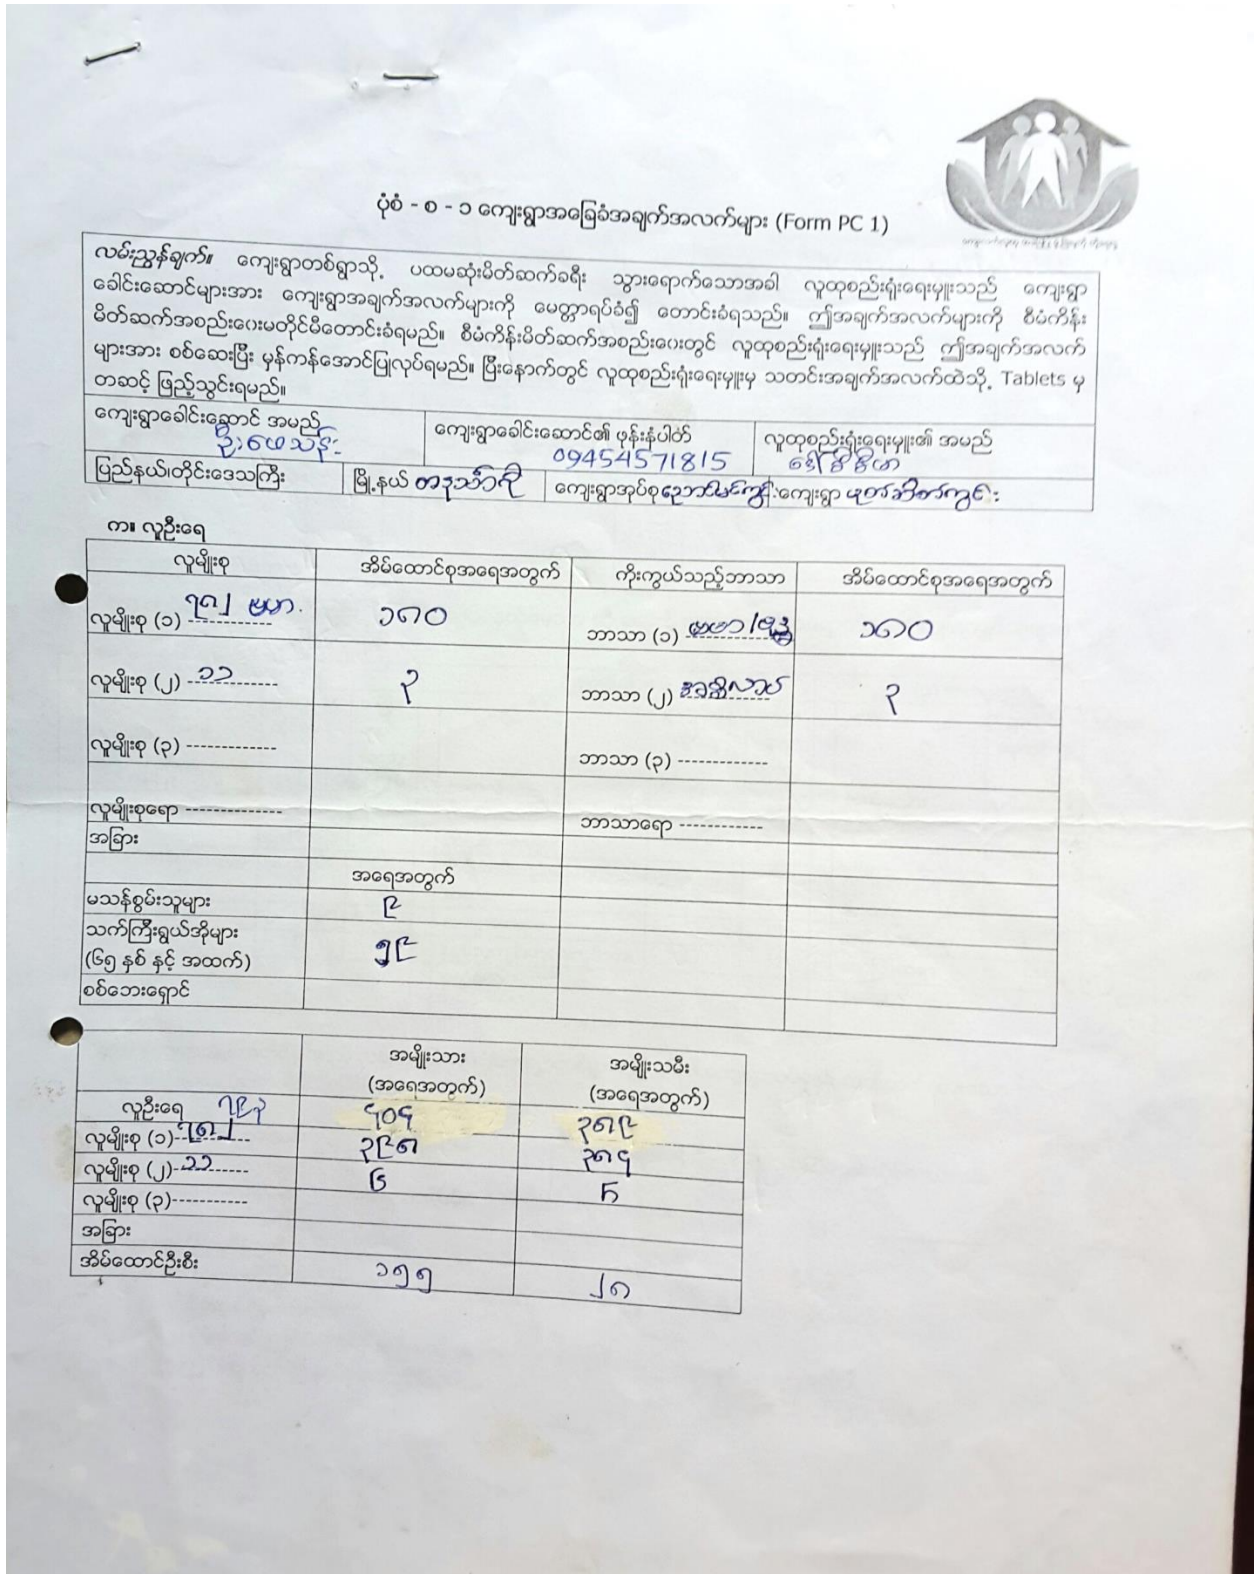 ပုံစံ - စ - ၁ ကျေးရွာအခြေခံအချက်အလက်များ (Form PC 1)
လမ်းညွှန်ချက်။ ကျေးရွာတစ်ရွာသို့ ပထမဆုံးမိတ်ဆက်ခရီး သွားရောက်သောအခါ လူထုစည်းရုံးရေးမှူးသည် ကျေးရွာ
ခေါင်းဆောင်များအား ကျေးရွာအချက်အလက်များကို မေတ္တာရပ်ခံ၍ တောင်းခံရသည်။ ဤအချက်အလက်များကို စီမံကိန်း
မိတ်ဆက်အစည်းဝေးမတိုင်မီတောင်းခံရမည်။ စီမံကိန်းမိတ်ဆက်အစည်းဝေးတွင် လူထုစည်းရုံးရေးမှူးသည် ဤအချက်အလက်
များအား စစ်ဆေးပြီး မှန်ကန်အောင်ပြုလုပ်ရမည်။ ပြီးနောက်တွင် လူထုစည်းရုံးရေးမှူးမှ သတင်းအချက်အလက်ထဲသို့ Tablets မှ
တဆင့် ဖြည့်သွင်းရမည်။
ကျေးရွာခေါင်းဆောင် အမည် ကျေးရွာခေါင်းဆောင်၏ ဖုန်းနံပါတ် လူထုစည်းရုံးရေးမှူး၏ အမည်
ဦးဖေသန်း 09454571815
ပြည်နယ်၊တိုင်းဒေသကြီး မြို့နယ် တနင်္သာရီ ကျေးရွာအုပ်စု ကျေးရွာ
က။ လူဦးရေ
လူမျိုးစု အိမ်ထောင်စုအရေအတွက် ကိုးကွယ်သည့်ဘာသာ အိမ်ထောင်စုအရေအတွက်
လူမျိုးစု (၁) ၇၈၂ ဗမာ ၁၈၀ ဘာသာ (၁) ဗမာ/ဗုဒ္ဓ ၁၈၀
လူမျိုးစု (၂) ၁၁ ၃ ဘာသာ (၂) အစ္စလာမ် ၃
လူမျိုးစု (၃) ------------- ဘာသာ (၃) -------------
လူမျိုးစုရော -------------- ဘာသာရော ------------
အခြား
အရေအတွက်
မသန်စွမ်းသူများ ၉
သက်ကြီးရွယ်အိုများ
(၆၅ နှစ် နှင့် အထက်) ၅၉
စစ်ဘေးရှောင်
အမျိုးသား အမျိုးသမီး
(အရေအတွက်) (အရေအတွက်)
လူဦးရေ ၇၉၃ ၄၀၄ ၃၈၉
လူမျိုးစု (၁) ၇၈၂ ၃၉၈ ၃၈၄
လူမျိုးစု (၂) ၁၁ ၆ ၅
လူမျိုးစု (၃)-----------
အခြား
အိမ်ထောင်ဦးစီး ၁၅၅ ၂၈